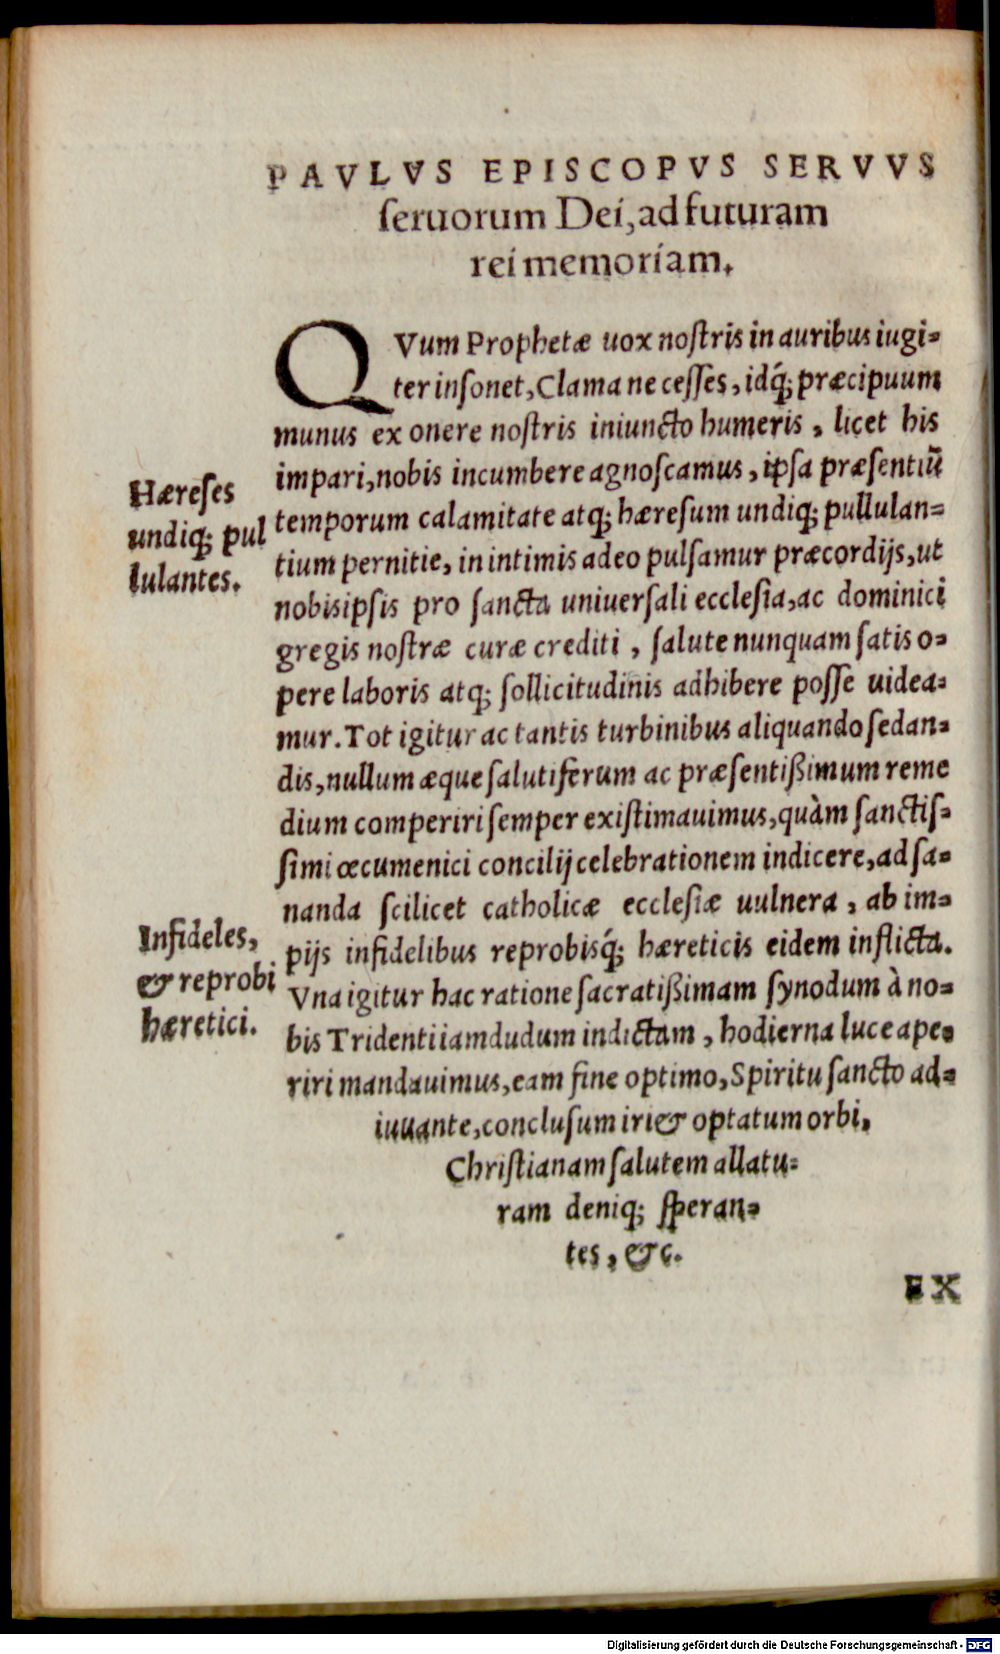 PAVLVS EPISCOPVS SERVVS
ſeruorum Dei, ad futuram
rei memoriam.
QVum Prophetæ uox noſtris in auribus iugi-
ter inſonet, Clama ne ceſſes, idq́; præcipuum
munus ex onere noſtris iniuncto humeris, licet his
impari, nobis incumbere agnoſcamus, ipſa præſentiū
temporum calamitate atq; hæreſum undiq; pullulan-
tium pernitie, in intimis adeo pulſamur præcordijs, ut
nobisipſis pro ſancta uniuerſali eccleſia, ac dominici
gregis noſtræ curæ crediti, ſalute nunquam ſatis o-
pere laboris atq; ſollicitudinis adhibere poſſe uidea-
mur. Tot igitur ac tantis turbinibus aliquando ſedan-
dis, nullum æque ſalutiferum ac præſentißimum reme
dium comperiri ſemper exiſtimauimus, quàm ſanctiſ-
ſimi œcumenici concilij celebrationem indicere, ad ſa-
nanda ſcilicet catholicæ eccleſiæ uulnera, ab im-
pijs infidelibus reprobisq́; hæreticis eidem inflicta.
Vna igitur hac ratione ſacratißimam ſynodum à no-
bis Tridenti iamdudum indictam, hodierna luce ape-
riri mandauimus, eam fine optimo, Spiritu ſancto ad-
iuuante, concluſum iri & optatum orbi,
Chriſtianam ſalutem allatu-
ram deniq; ſperan-
tes, &c.
Hæreſes
undiq; pul
lulantes.
Infideles,
& reprobi
hæretici.
EX
Digitalisierung gefördert durch die Deutsche Forschungsgemeinschaft - DFG